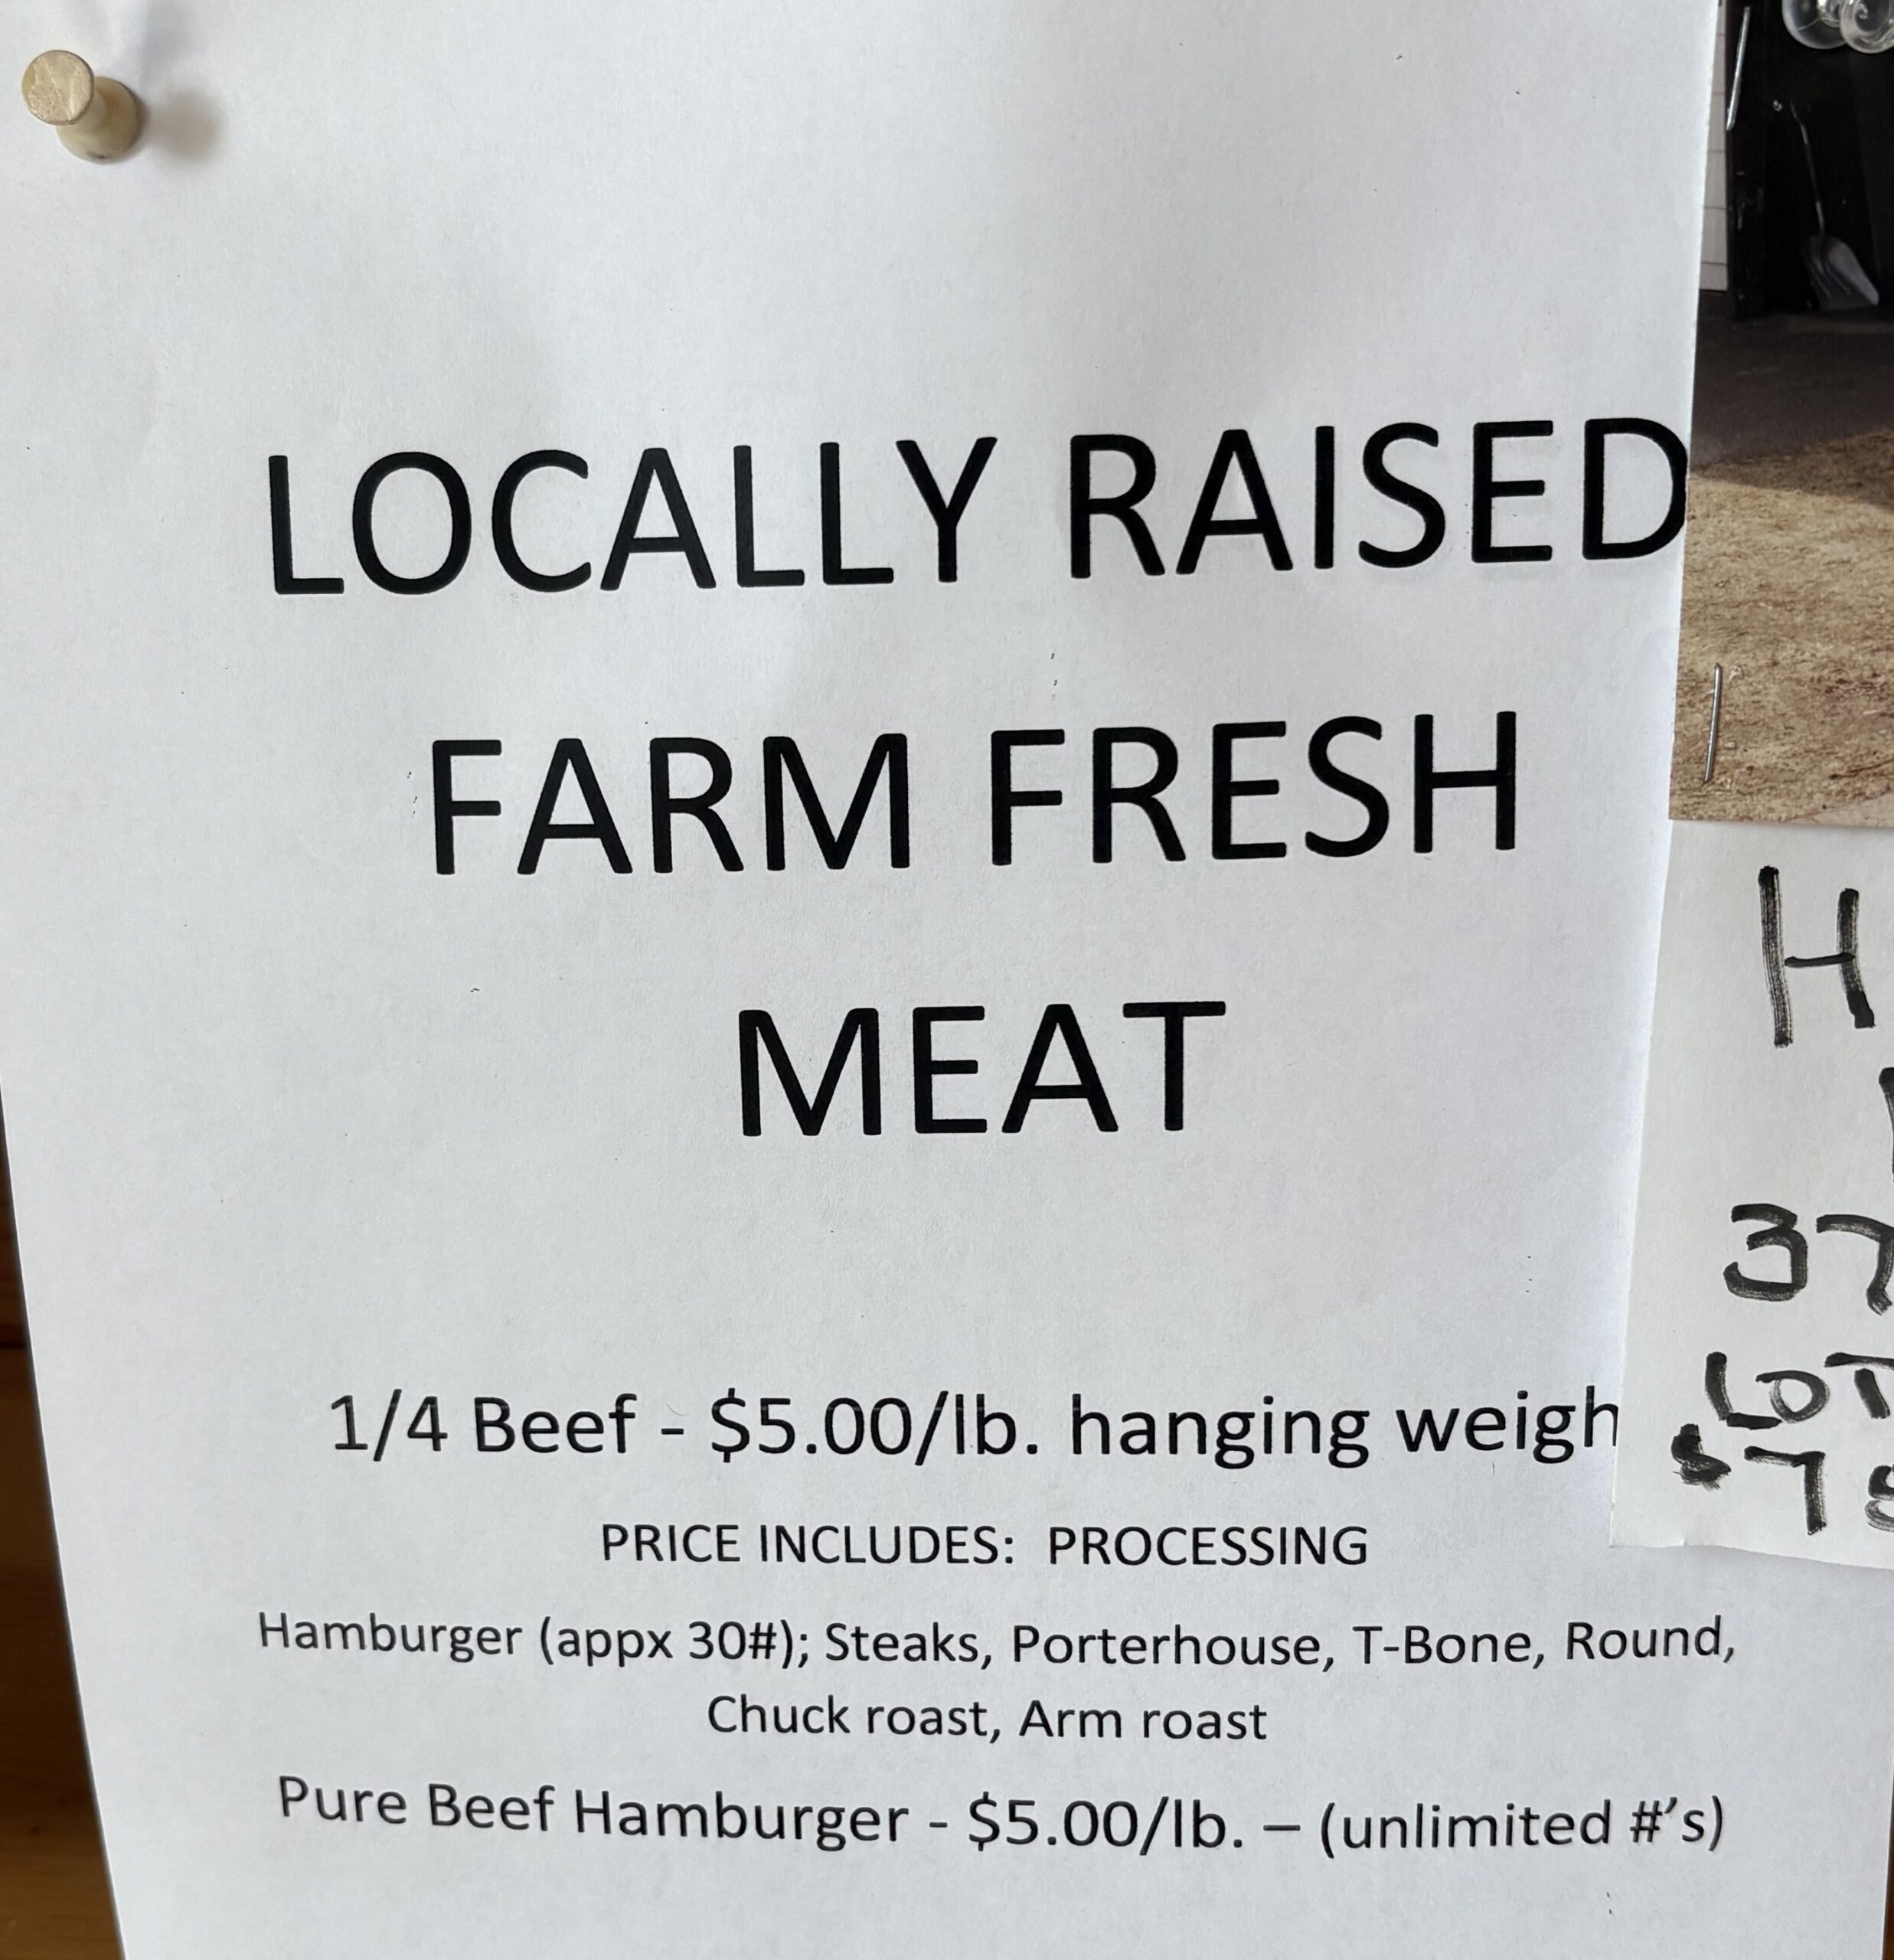 LOCALLY RAISED
FARM FRESH
MEAT
1/4 Beef - $5.00/lb. hanging weigh
PRICE INCLUDES: PROCESSING
Hamburger (appx 30#); Steaks, Porterhouse, T-Bone, Round,
Chuck roast, Arm roast
Pure Beef Hamburger - $5.00/lb. – (unlimited #'s)
H
37
LOT
$7